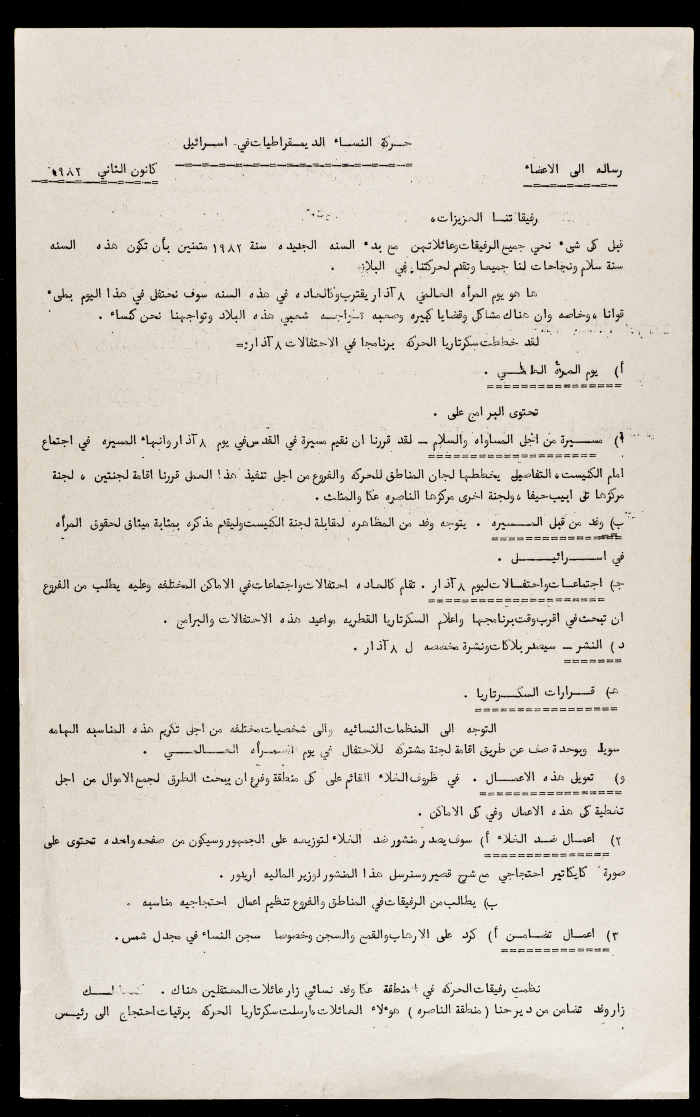 حركة النساء الديمقراطيات في اسرائيل
رساله الى الاعضاء
كانون الثاني ١٩٨٢
رفيقاتنا العزيزات،
قبل كل شيء نحي جميع الرفيقات وعائلاتهن مع بدء السنه الجديده سنة ١٩٨٢ متمنين بأن تكون هذه السنه
سنة سلام ونجاحات لنا جميعا وتقدم لحركتنا في البلاد .
ها هو يوم المرأه العالمي ٨ آذار يقترب وكالعاده في هذه السنه سوف نحتفل في هذا اليوم بملء
قوانا ، وخاصه وان هناك مشاكل وقضايا كبيره وصعبه تواجه شعبي هذه البلاد وتواجهنا نحن كنساء .
لقد خططت سكرتاريا الحركه برنامجا في الاحتفالات ٨ آذار :=
أ) يوم المرأة العالمي .
تحتوى البرامج على .
أ) مسيرة من اجل المساواه والسلام ــ لقد قررنا ان نقيم مسيرة في القدس في يوم ٨ آذار وانهاء المسيره في اجتماع
امام الكنيست ، التفاصيل يخططها لجان المناطق للحركه والفروع من اجل تنفيذ هذا العمل قررنا اقامة لجنتين ، لجنة
مركزها تل ابيب حيفا ، ولجنة اخرى مركزها الناصره عكا والمثلث .
ب) وفد من قبل المسيره . يتوجه وفد من المظاهره لمقابلة لجنة الكنيست وليقدم مذكره بمثابة ميثاق لحقوق المرأه
في اسرائيل .
جـ) اجتماعات واحتفالات ليوم ٨ آذار . تقام كالعاده احتفالات واجتماعات في الاماكن المختلفه وعليه يطلب من الفروع
ان تبحث في اقرب وقت برنامجها واعلام السكرتاريا القطريه مواعيد هذه الاحتفالات والبرامج .
د) النشر ــ سيصدر بلاكات ونشرة مخصصه ل ٨ آذار .
هـ) قرارات السكرتاريا .
التوجه الى المنظمات النسائيه والى شخصيات مختلفه من اجل تكريم هذه المناسبه الهامه
سويا وبوحدة صف عن طريق اقامة لجنة مشتركه للاحتفال في يوم المرأه العالمي .
و) تمويل هذه الاعمال . في ظروف الغلاء القائم على كل منطقة وفرع ان يبحث الطرق لجمع الاموال من اجل
تغطية كل هذه الاعمال وفي كل الاماكن .
٢) اعمال ضد الغلاء أ) سوف يصدر منشور ضد الغلاء لتوزيعه على الجمهور وسيكون من صفحه واحده تحتوى على
صورة كايكاتير احتجاجي مع شرح قصير وسنرسل هذا المنشور لوزير الماليه اريدور .
ب) يطالب من الرفيقات في المناطق والفروع تنظيم اعمال احتجاجيه مناسبه .
٣) اعمال تضامن أ) كرد على الارهاب والقمع والسجن وخصوصا سجن النساء في مجدل شمس .
نظمت رفيقات الحركه في منطقة عكا وفد نسائي زار عائلات المعتقلين هناك . كذلك
زار وفد تضامن من دير حنا ( منطقة الناصره ) هولاء العائلات وارسلت سكرتاريا الحركه برقيات احتجاج الى رئيس